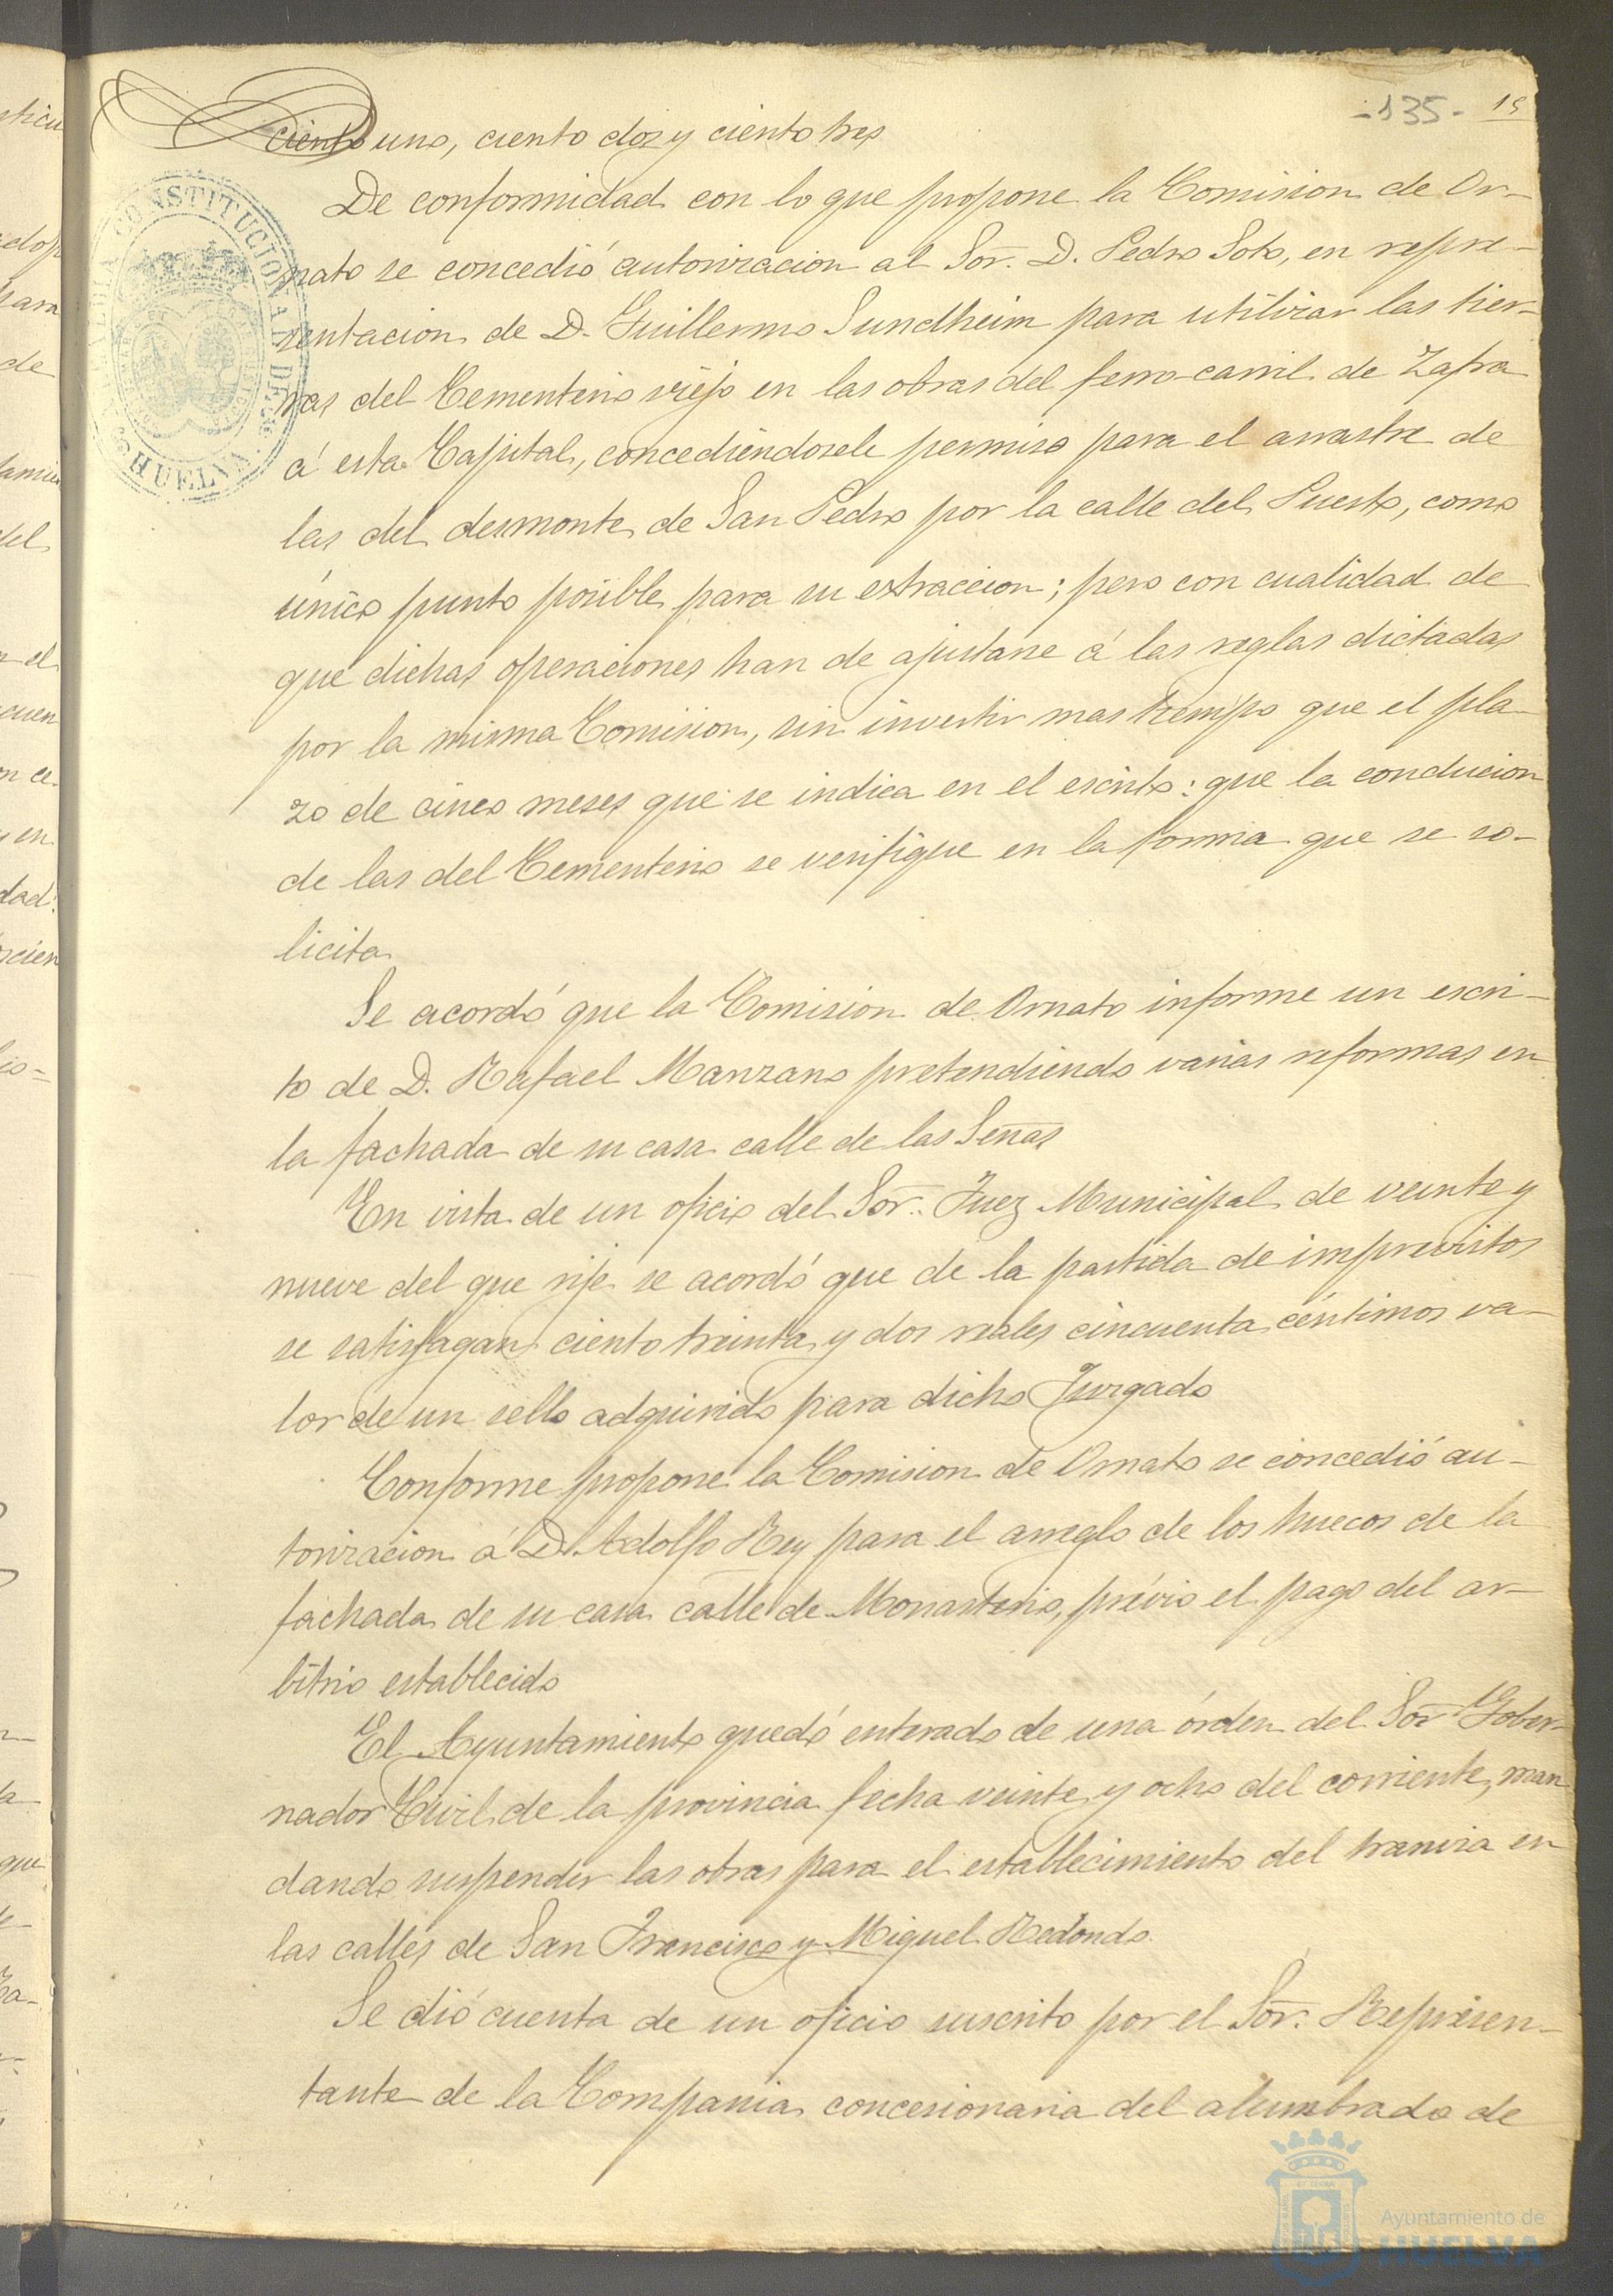 -135- 15
ciento uno, ciento dos y ciento tres
De conformidad con lo que propone la Comision de Or-
nato se concedió autorizacion al Sor. D. Pedro Soto, en repre-
sentacion de D. Guillermo Sundheim para utilizar las tier-
ras del Cementerio viejo en las obras del ferro-carril de Zafra
á esta Capital, concediéndosele permiso para el arrastre de
las del desmonte de San Pedro por la calle del Puerto, como
único punto posible para su extraccion; pero con cualidad de
que dichas operaciones han de ajustarse á las reglas dictadas
por la misma Comision, sin invertir mas tiempo que el pla-
zo de cinco meses que se indica en el escrito: que la conducion
de las del Cementerio se verifique en la forma que se so-
licita
Se acordó que la Comision de Ornato informe un escri-
to de D. Rafael Manzano pretendiendo varias reformas en
la fachada de su casa calle de las Señas
En vista de un oficio del Sor. Juez Municipal de veinte y
nueve del que rije se acordó que de la partida de imprevistos
se satisfagan ciento treinta y dos reales cincuenta céntimos va-
lor de un sello adquirido para dicho Juzgado
Conforme propone la Comision de Ornato se concedió au-
torizacion á D. Adolfo Rey para el arreglo de los huecos de la
fachada de su casa calle de Monasterio, prévio el pago del ar-
bitrio establecido
El Ayuntamiento quedó enterado de una órden del Sor Gober-
nador Civil de la provincia fecha veinte y ocho del corriente, man
dando suspender las obras para el establecimiento del tranvia en
las calles de San Francisco y Miguel Redondo.
Se dió cuenta de un oficio suscrito por el Sor. Represen-
tante de la Compania concesionaria del alumbrado de
CONSTITUCIONAL DE
HUELVA
Ayuntamiento de
HUELVA